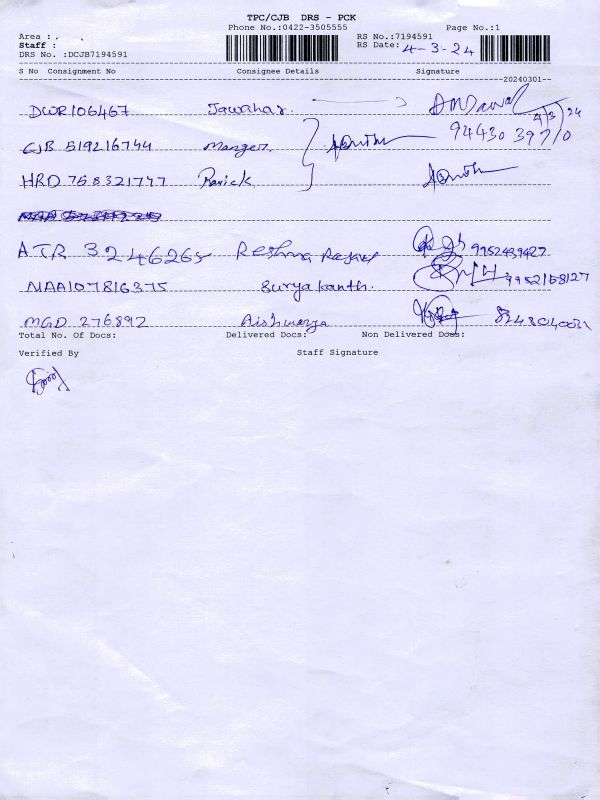 TPC/CJB DRS - PCK
Phone No.:0422-3505555 Page No.:1
Area :. .
RS No.:7194591
Staff :
RS Date: 4-3-24
DRS No. :DCJB7194591
S No Consignment No Consignee Details Signature
20240301
DWR106467 Jawahar.
4/3/24
CJB 519216744 Manger. 94430 39770
HRD 758321777
ATR 324626 Reshma 9952439427
MAA107816375 Surya kanth. 9952168127
MGD 276892 Aishwarya
Total No. Of Docs: Delivered Docs: Non Delivered Docs:
Verified By Staff Signature